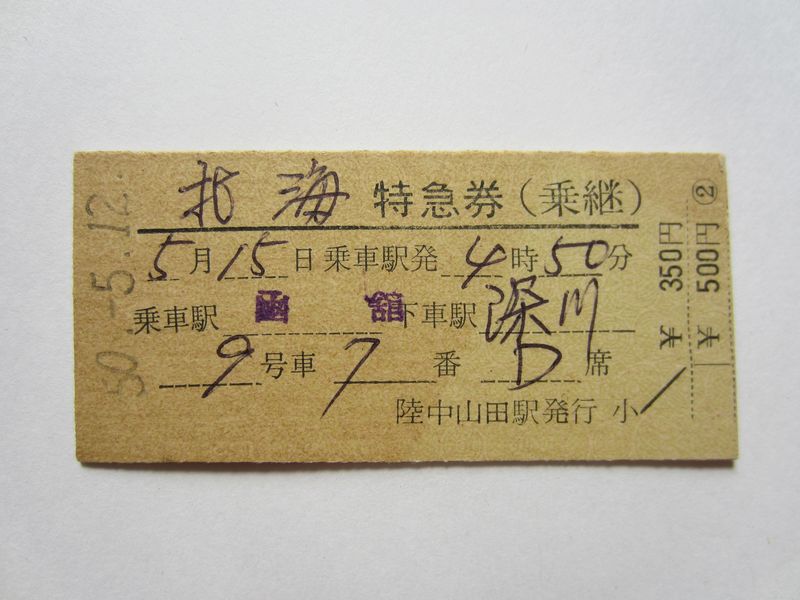 北海 特急券(乗継)
5月15日乗車駅発4時50分
乗車駅 函館 下車駅 深川
9号車7番D席
陸中山田駅発行 小
50.-5.12
¥ 350円
¥ 500円 ②